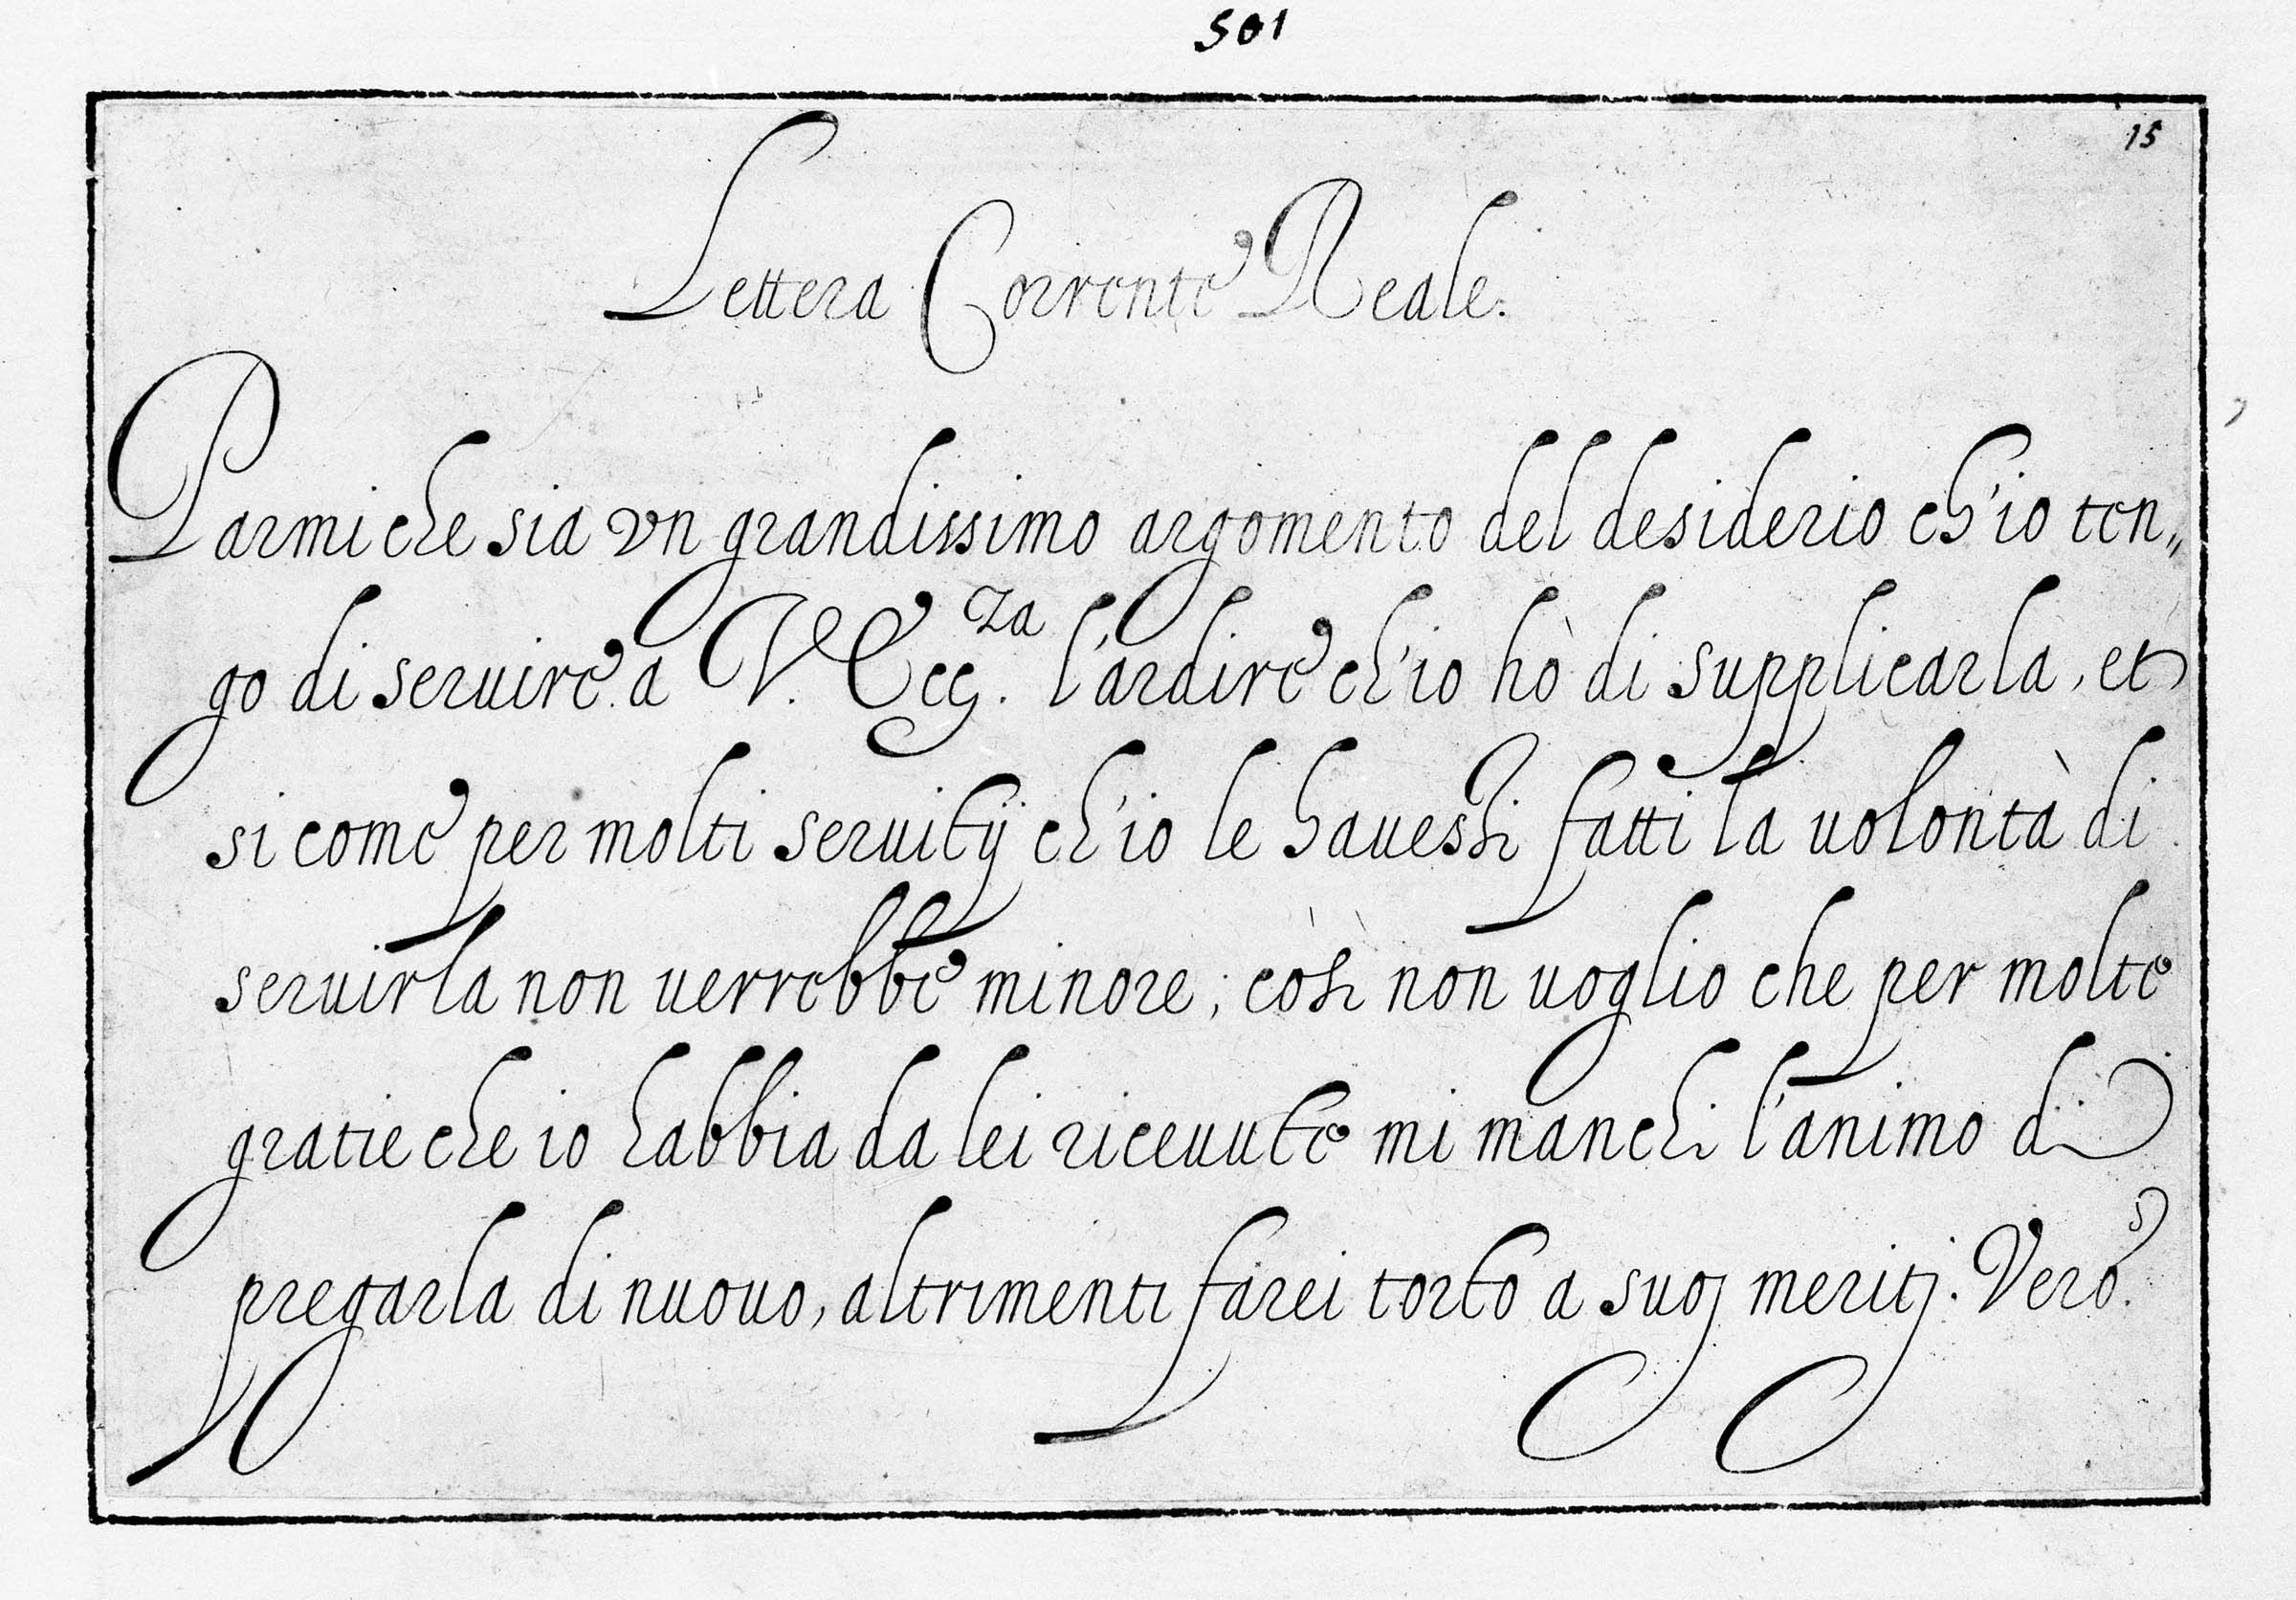 501
15
Lettera Corrente Reale.
Parmi che sia vn grandissimo argomento del desiderio ch'io ten„
go di seruire a V. Ecc.za l'ardire ch'io hò di supplicarla, et
si come per molti seruitij ch'io le hauessi fatti la uolontà di
seruirla non uerrebbe minore; così non uoglio che per molte
gratie che io habbia da lei riceuute mi manchi l'animo di
pregarla di nuouo, altrimenti farei torto a suoj meritj. Vero.